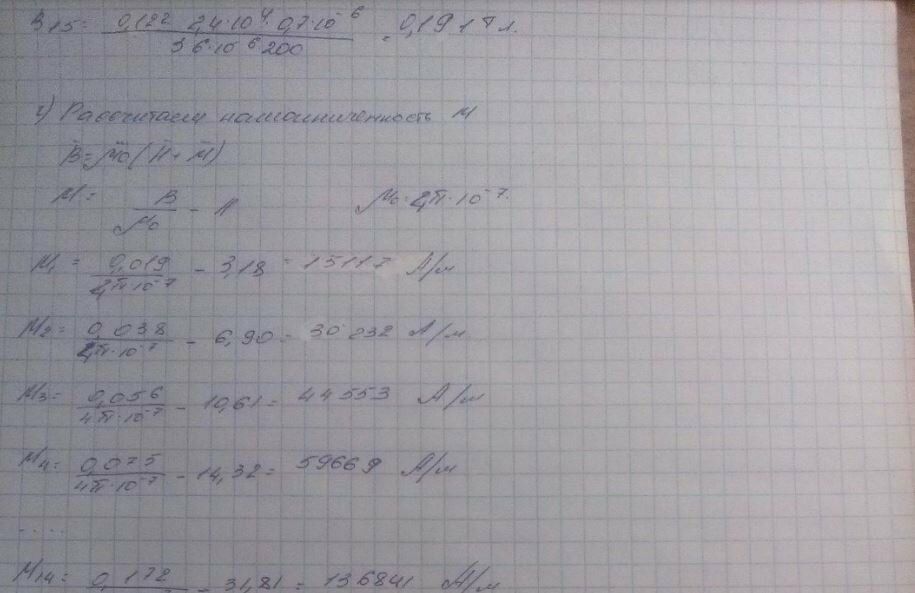 B₁₅ = (0,122 · 2,4·10⁴ · 0,7·10⁻⁶) / (36·10⁻⁶ 200) = 0,191 Тл.
4) Рассчитаем намагниченность M
B = μ₀(H + M)
M = B/μ₀ - H μ₀ = 4π·10⁻⁷.
M₁ = 0,019/(4π·10⁻⁷) - 3,18 = 15117 А/м
M₂ = 0,038/(4π·10⁻⁷) - 6,90 = 30232 А/м
M₃ = 0,056/(4π·10⁻⁷) - 10,61 = 44553 А/м
M₄ = 0,075/(4π·10⁻⁷) - 14,32 = 59669 А/м
.....
M₁₄ = 0,172 - 31,81 = 136841 А/м